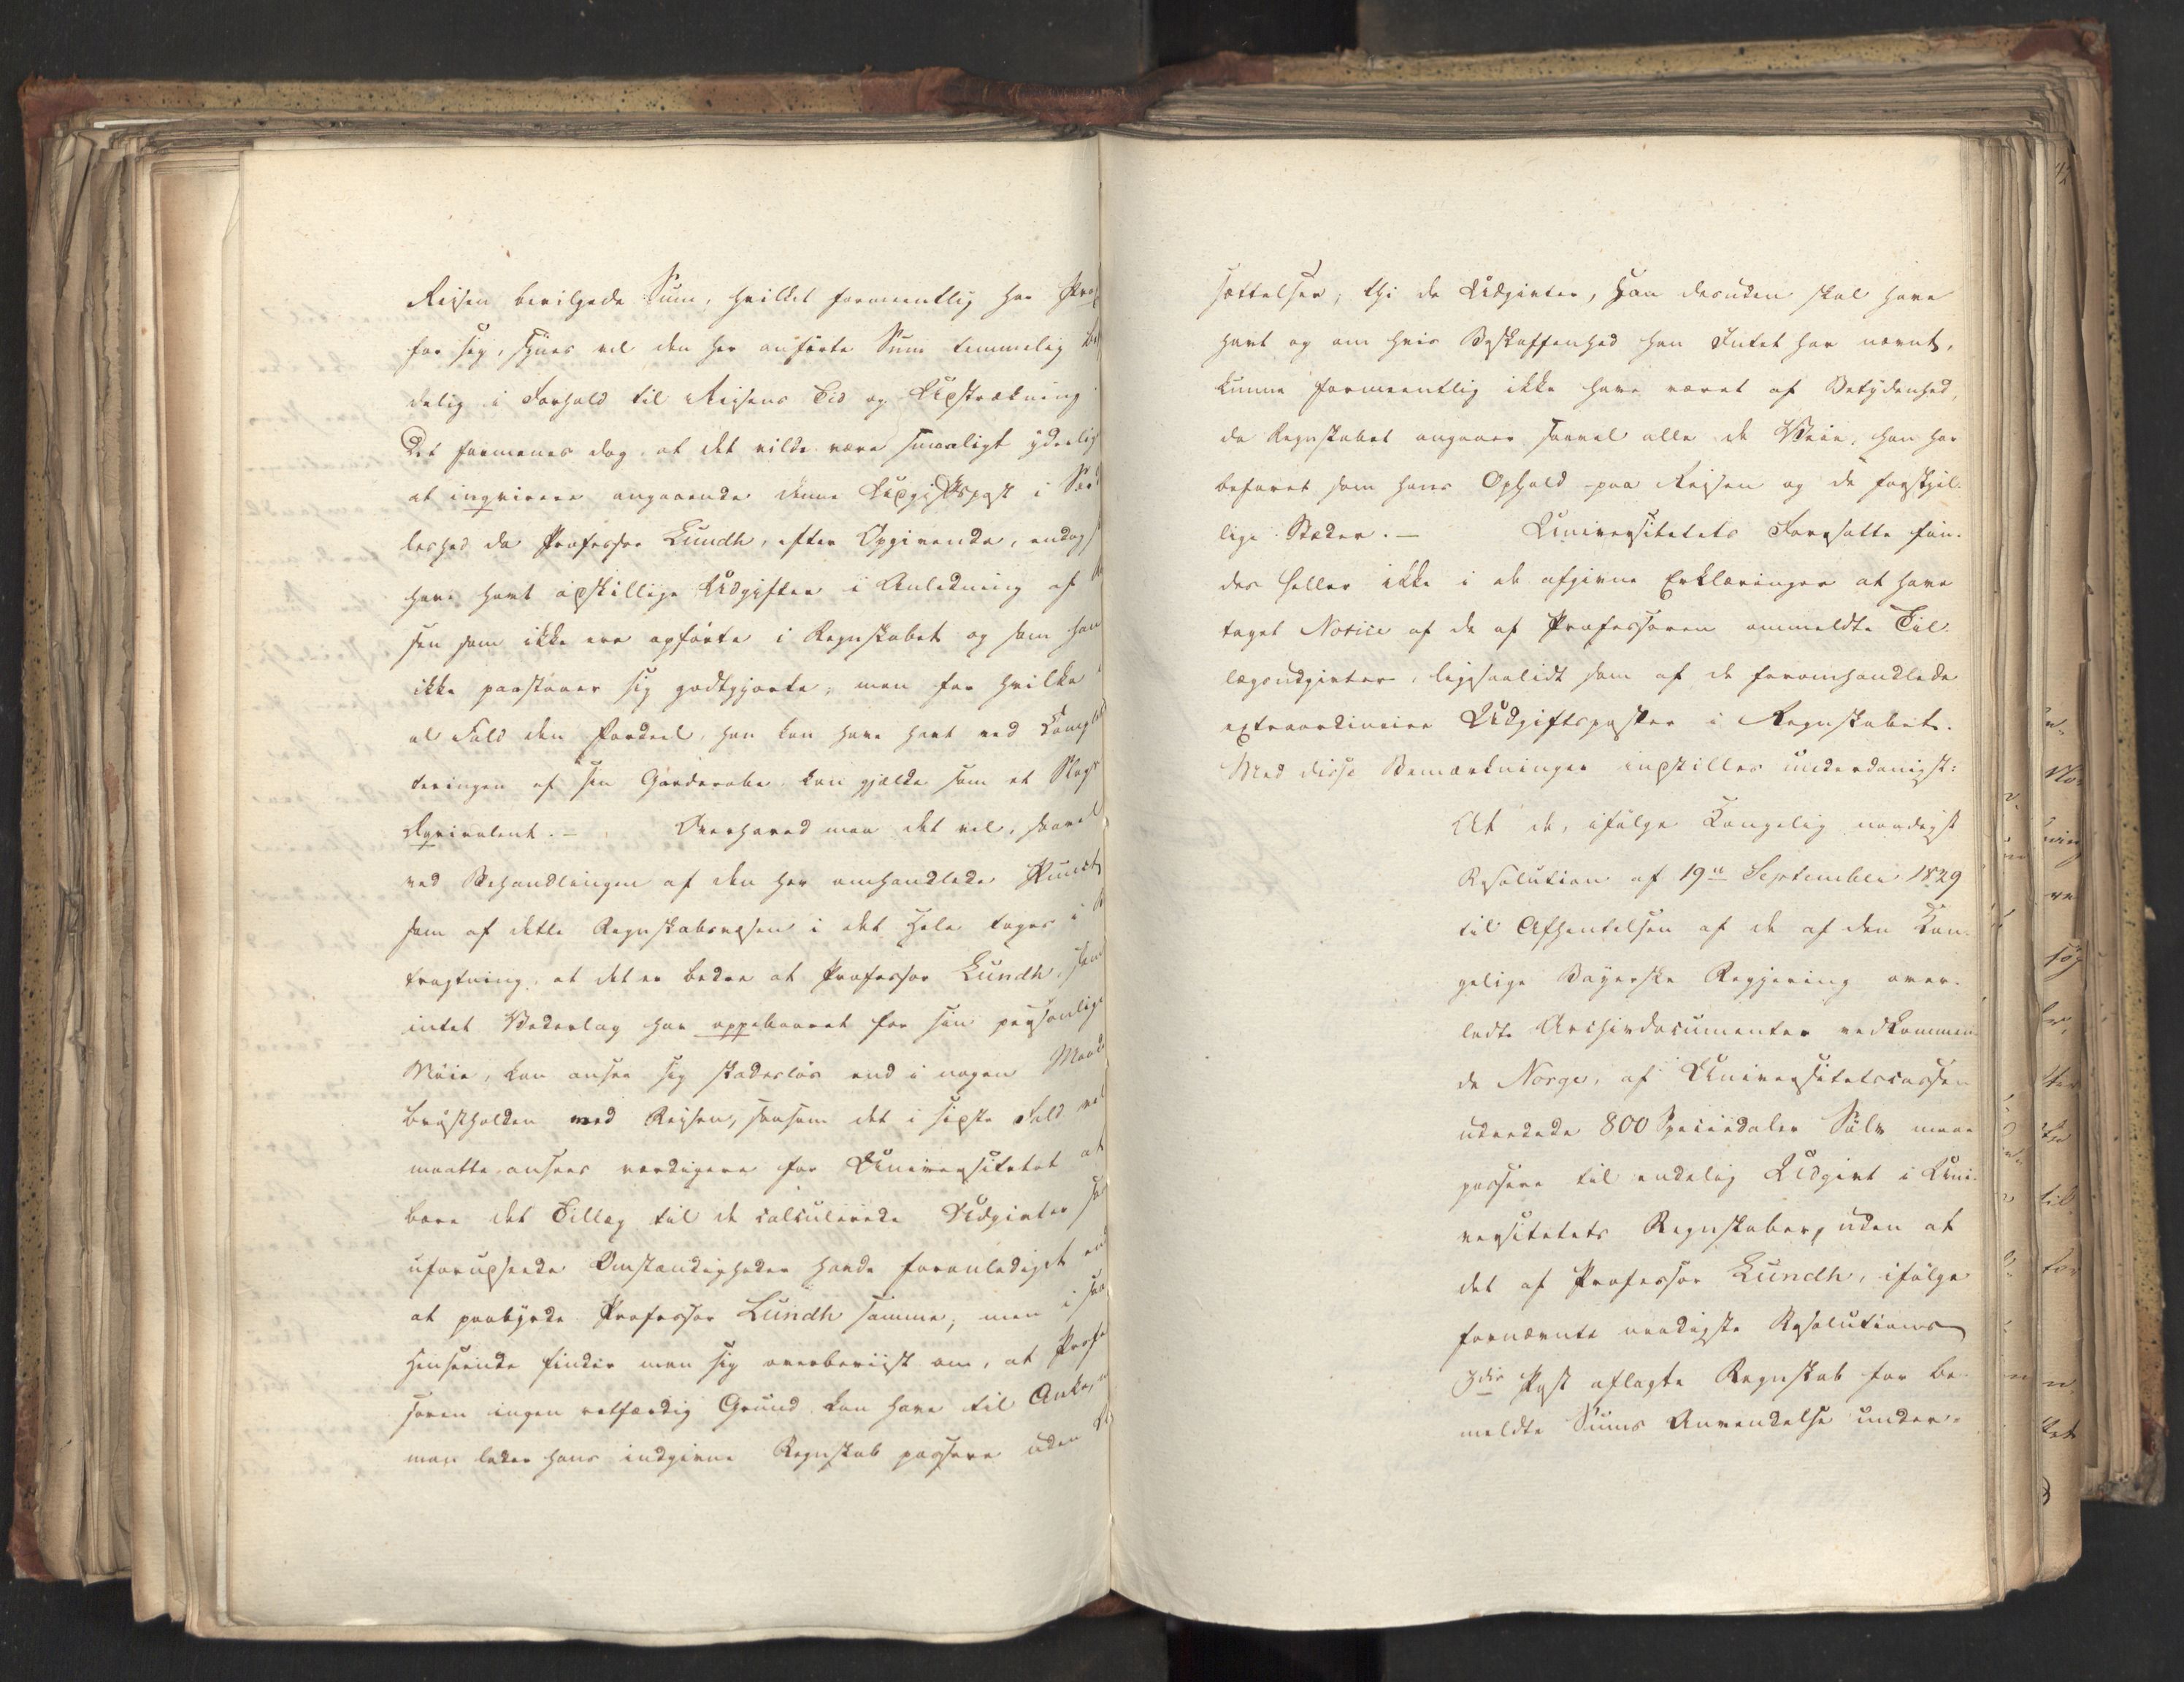 Reisen bevilgede Sum, hvilket formeentlig har
for sig, synes vel den her anførte Sum temmelig
delig i Forhold til Reisens Tid og Udstrækning
Det formenes dog at det vilde være smaaligt yderlig
at inqvirere angaaende denne Udgiftspost i Sær
leshed da Professor Lundh, efter Opgivende, endog
have havt adskillige Udgifter i Anledning af
sen som ikke ere opførte i Regnskabet og som han
ikke paastaaer sig godtgjorte, men for hvilke
al Fald den Fordeel, han kan have havt ved Comple
teringen af sin Garderobe kan gjælde som et Slags
Æqvivalent. – Overhoved maa det vel, saavel
ved Behandlingen af den her omhandlede Punct
som af dette Regnskabsvæsen i det Hele tages i
tragtning, at det er bedre at Professor Lundh, som
intet Vederlag har oppebaaret for sin personlige
Møie, kan ansee sig skadesløs end i nogen Maade
brøstholden ved Reisen, saasom det i sidste Fald vel
maatte ansees værdigere for Universitetet at
bære det Tillæg til de calculerede Udgivter
uforudseede Omstændigheder havde foranlediget end
at paabyrde Professor Lundh samme, men i saa
Henseende finder man sig overbeviist om, at Profes
soren ingen retfærdig Grund kan have til Anke,
man lader hans indgivne Regnskab passere uden
sættelser, thi de Udgivter, han desuden skal have
havt og om hvis Beskaffenhed han Intet har nævnt,
kunne formeentlig ikke have været af Betydenhed,
da Regnskabet angaaer saavel alle de Veie, han har
befaret som hans Ophold paa Reisen og de forskjel-
lige Steder. – Universitetets Foresatte fin-
des heller ikke i de afgivne Erklæringer at have
taget Notice af de af Professoren ommeldte Til-
lægsudgivter, ligesaalidt som af de foromhandlede
extraordinaire Udgiftsposter i Regnskabet.
Med disse Bemærkninger indstilles underdanigst:
At de, ifølge Kongelig naadigst
Resolution af 19de September 1829
til Afhentelsen af de af den Kon-
gelige Bayerske Regjering over-
ladte Archivdocumenter vedkommen-
de Norge, af Universitetscassen
udredede 800 Speciedaler Sølv maae
passere til endelig Udgivt i Uni-
versitetets Regnskaber, uden at
det af Professor Lundh, ifølge
fornævnte naadigste Resolutions
3die Post aflagte Regnskab for be-
meldte Sums Anvendelse under-